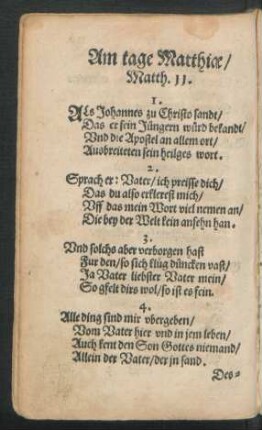 Am tage Matthiæ/
Matth. 11.
1.
ALs Johannes zu Christo sandt/
Das er sein Jüngern würd bekandt/
Vnd die Apostel an allem ort/
Ausbreiteten sein heilges wort.
2.
Sprach er: Vater/ich preisse dich/
Das du also erklerest mich/
Vff das mein Wort viel nemen an/
Die bey der Welt kein ansehn han.
3.
Vnd solchs aber verborgen hast
Fur den/so sich klüg düncken vast/
Ja Vater liebster Vater mein/
So gfelt dirs wol/so ist es fein.
4.
Alle ding sind mir vbergeben/
Vom Vater hier vnd in jem leben/
Auch kent den Son Gottes niemand/
Allein der Vater/der jn sand.
Des=